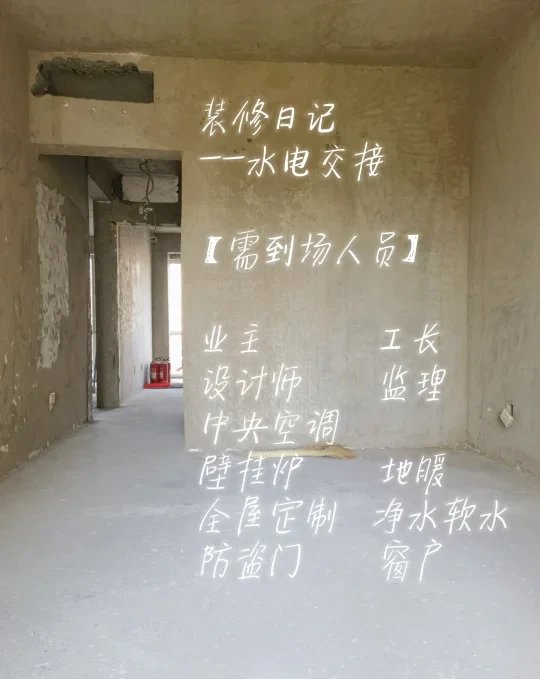 装修日记
——水电交接
【需到场人员】
业主 工长
设计师 监理
中央空调
壁挂炉 地暖
全屋定制 净水软水
防盗门 窗户